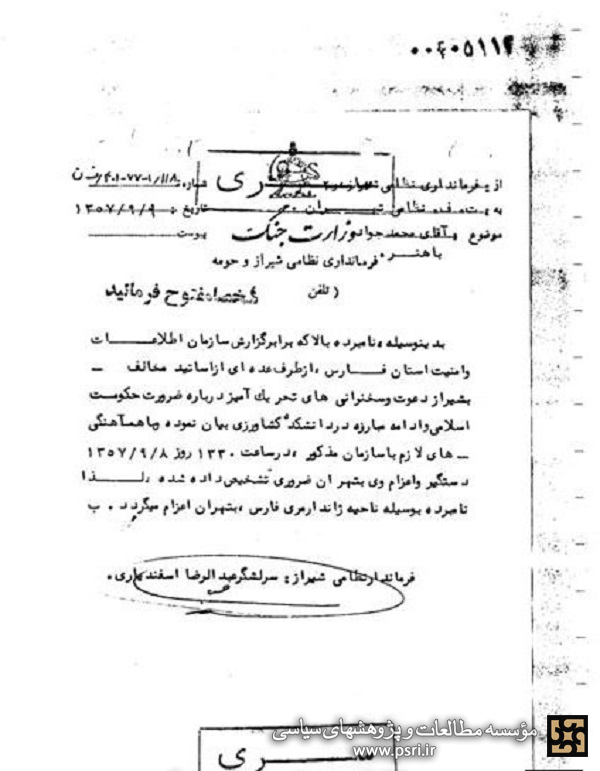 ۰۰۴۰۵۱۱۲
سری
از : فرمانداری نظامی شیراز
شماره : ۴۰۱-۷۷-۱/۱۱۸
به : فرمانداری نظامی تهران
تاریخ : ۱۳۵۷/۹/۹
موضوع : آقای محمد جواد باهنر .
پیوست
وزارت جنگ
فرمانداری نظامی شیراز و حومه
( تلفن
شخصا مفتوح فرمائید
بدینوسیله نامبرده بالا که برابر گزارش سازمان اطلاعات
وامنیت استان فارس ، از طرف عده ای از اساتید مخالف -
بشیراز دعوت وسخنرانی های تحریك آمیز درباره ضرورت حکومت
اسلامی وادامه مبارزه در دانشکده کشاورزی بیان نموده وباهمآهنگی
- های لازم باسازمان مذکور ، درساعت ۱۳۳۰ روز ۱۳۵۷/۹/۸
دستگیر واعزام وی بتهران ضروری تشخیص داده شده ، لذا
نامبرده بوسیله ناحیه ژاندارمری فارس ، بتهران اعزام میگردد . ب
فرماندار نظامی شیراز : سرلشگر عبدالرضا اسفندیاری .
مؤسسه مطالعات و پژوهشهای سیاسی
www.psri.ir
سری